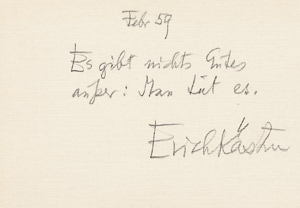 Febr 59
Es gibt nichts Gutes
außer: Man tut es.
Erich Kästner